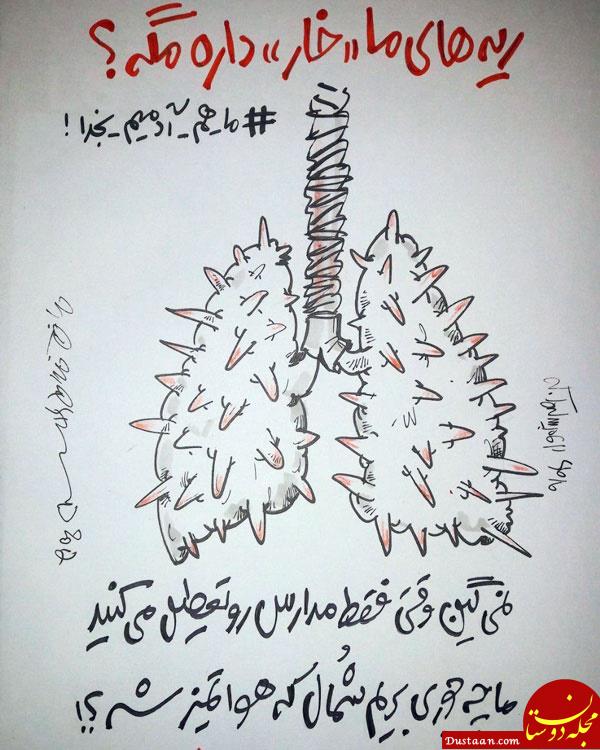 ریه های ما "خار" داره مگه؟
#ما_هم_آدمیم_بخدا!
نمی گین وقتی فقط مدارس رو تعطیل می کنید
ما چه جوری بریم شُمال که هوا تمیز شه؟!
مجله دوستان
Dustaan.com